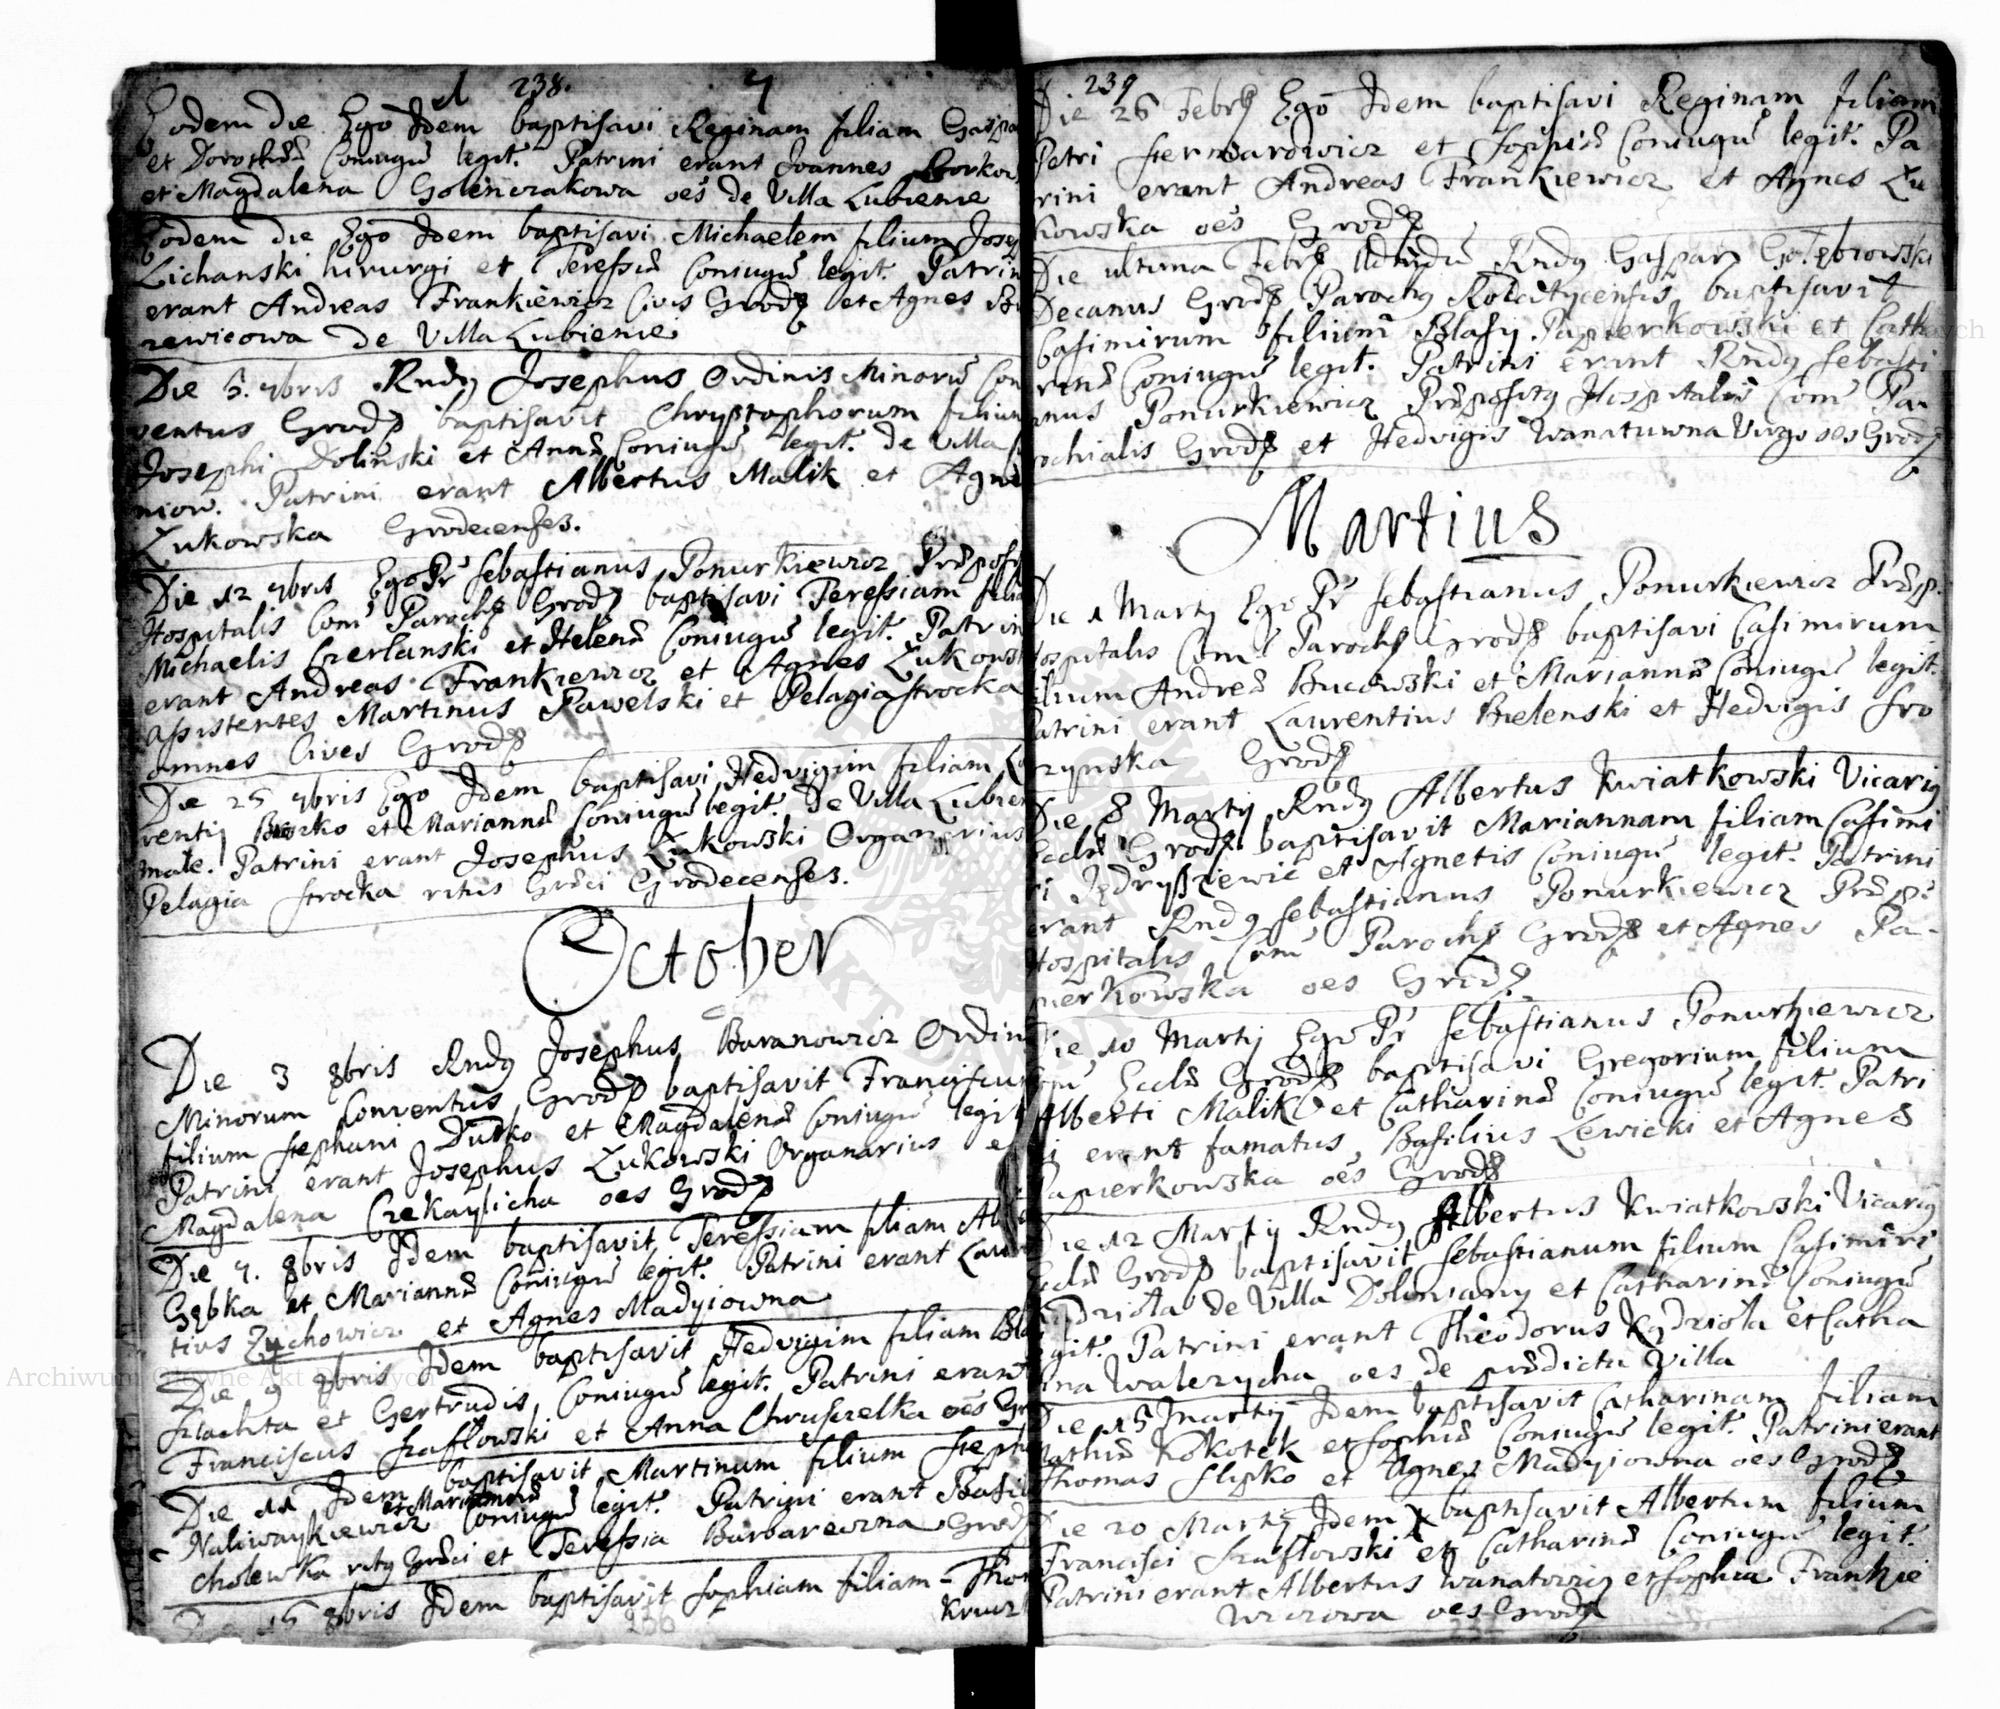 238.
Eodem die Ego Idem baptisavi Reginam filiam Gaspa
et Dorotheæ Coniugū legit. Patrini erant Joannes Borkow
et Magdalena Golenczakowa oēs de Villa Lubienie
Eodem die Ego Idem baptisavi Michaelem filium Jose
Lichanski hirurgi et Teressiæ Coniugū legit. Patrin
erant Andreas Frankiewicz Civis Grod et Agnes
zewicowa de Villa Lubienie
Die 5. 7bris Rndq Josephus Ordinis Minorū Con
ventus Grod baptisavit Chrystophorum filium
Josephi Dolinski et Annæ Coniugū legit. de Villa
niow. Patrini erant Albertus Malik et Agne
Zukowska Grodecenses.
Die 12 7bris Ego Pr Sebastianus Ponurkiewicz Præposi
Hospitalis Com Paroch Grod baptisavi Teressiam filia
Michaelis Czerlanski et Helenæ Coniugū legit. Patrin
erant Andreas Frankiewicz et Agnes Zukowsk
assistentes Martinus Pawelski et Pelagia Srocka
omnes Cives Grod
Die 25 7bris Ego Idem baptisavi Hedvigim filiam La
rentij et Mariannæ Coniugū legit. de Villa Lubien
male. Patrini erant Josephus Zukowski Organarius
Pelagia Srocka ritus Græci Grodecenses.
October
Die 3 8bris Rndq Josephus Baranowicz Ordin
Minorum Conventus Grod baptisavit Franciscu
filium Stephani Dudko et Magdalenæ Coniugū legit
Patrini erant Josephus Zukowski Organarius e
Magdalena Czekaylicha oes Grod
Die 7. 8bris Idem baptisavit Teressiam filiam Al
Gębka et Mariannæ Coniugū legit. Patrini erant Lauren
tius Zychowicz et Agnes Madyiowna
Die 9 8bris Idem baptisavit Hedvigim filiam Bla
Szlachta et Gertrudis Coniugū legit. Patrini erant
Franciscus Szaflowski et Anna Chruscrelka oēs Gr
Die 11 Idem baptisavit Martinum filium Steph
et Mariannæ
Naliwaykiewicz Coniugū legit. Patrini erant Basil
Cholewka ritq Græci et Teressia Barbarewna Grod
Die 15 8bris Idem baptisavit Sophiam filiam Tho
Krucz
239
Die 26 Febrij Ego Idem baptisavi Reginam filiam
Petri et Sophiæ Coniugū legit. Pa
rini erant Andreas Frankiewicz et Agnes Zu
kowska oēs Grod
Die ultima Febr Rndq Gaspar Gołębiowski
Decanus Grod Parochq baptisavit
Casimirum filium Blasij Papierkowski et Catha
rinæ Coniugū legit. Patrini erant Rndq Sebasti
anus Ponurkiewicz Præpositq Hospitalis Com Pa
rochialis Grod et Hedvigis Wanatuwna Virgo oes Grod
Martius
Die 1 Martij Ego Pr Sebastianus Ponurkiewicz Præp.
Hospitalis Com Paroch Grod baptisavi Casimirum
filium Andreæ Bucowski et Mariannæ Coniugū legit.
Patrini erant Laurentius Bielenski et Hedvigis Sro
czynska Grod
Die 8 Martij Rndq Albertus Kwiatkowski Vicariq
Eccliæ Grod baptisavit Mariannam filiam Casimi
ri Jędryszkiewic et Agnetis Coniugū legit. Patrini
erant Rndq Sebastianus Ponurkiewicz Præp
Hospitalis Com Paroch Grod et Agnes Pa-
pierkowska oes Grod
Die 10 Martij Ego Pr Sebastianus Ponurkiewicz
Eccliæ Grod baptisavi Gregorium filium
Alberti Malik et Catharinæ Coniugū legit. Patri
i erant famatus Basilius Lewicki et Agnes
Papierkowska oēs Grod
Die 12 Martij Rndq Albertus Kwiatkowski Vicariq
Eccliæ Grod baptisavit Sebastianum filium Casimiri
Kądziola de Villa Dobrwiany et Catharinæ Coniugū
legit. Patrini erant Theodorus Kądziola et Catha
rina Walezycha oes de prædicta Villa
Die 15 Martij Idem baptisavit Catharinam filiam
Mathiæ Kokotek et Sophiæ Coniugū legit. Patrini erant
Thomas Slipko et Agnes Madyiowna oes Grod
Die 20 Martij Idem baptisavit Albertum filium
Francisci Szaflowski et Catharinæ Coniugū legit.
Patrini erant Albertus Wanatowicz et Sophia Frankie
wiczowa oes Grod